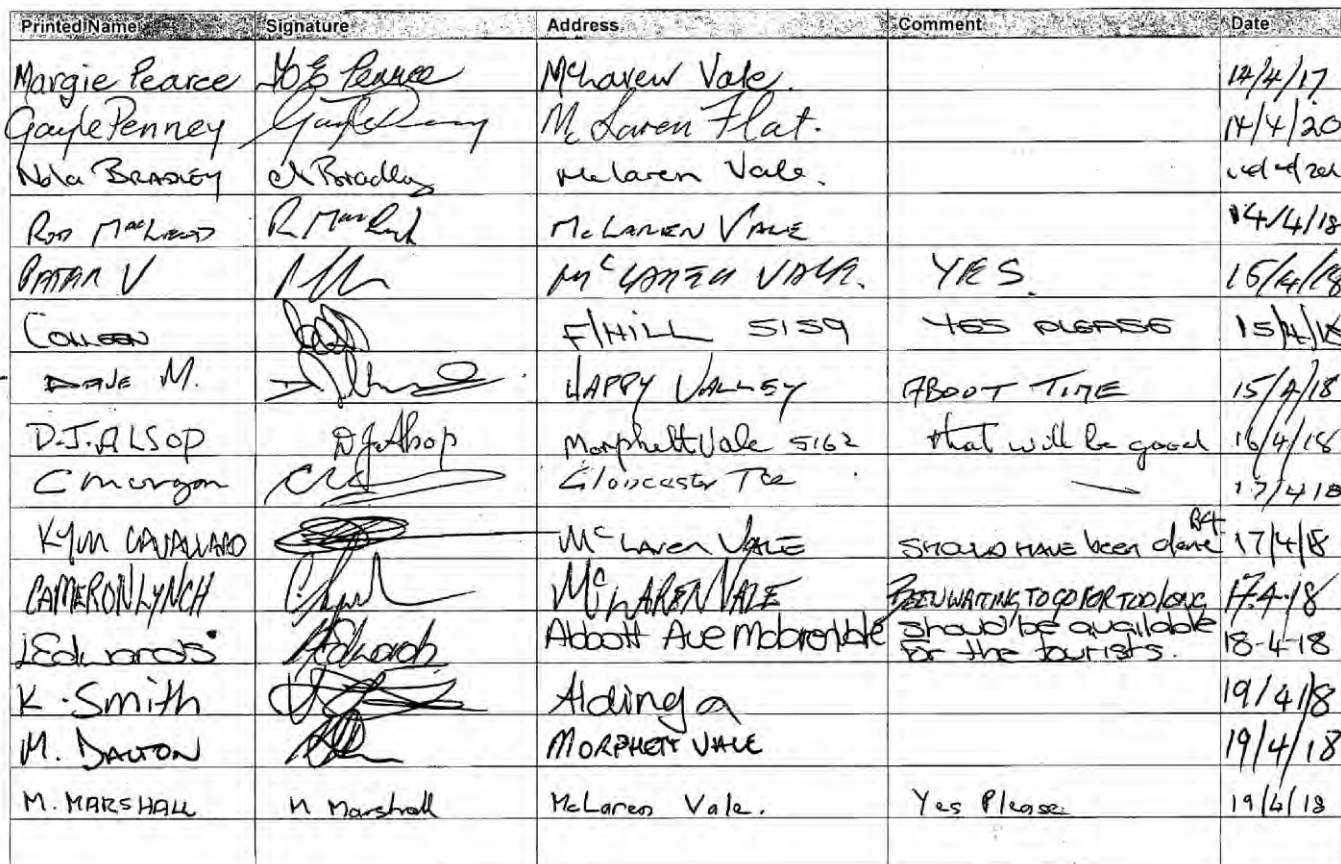 Printed Name Signature Address Comment Date
Margie Pearce Pearce McLaren Vale. 14/4/17
Gayle Penney McLaren Flat. 14/4/20
Nola BRADLEY N Bradley McLaren Vale.
ROD MacLEOD R McLAREN VALE 14/4/18
PETER V McLAREN VALE. YES. 15/4/18
COLLEEN F/HILL 5159 YES PLEASE 15/4/18
DAVE M. HAPPY VALLEY ABOUT TIME 15/4/18
D.J.ALSOP D.J.Alsop Morphett Vale 5162 that will be good 16/4/18
C Morgan Gloucester Tce 17/4/18
KYM CAVALLARO McLaren VALE SHOULD HAVE been done B4 17/4/18
CAMERON LYNCH McLAREN VALE BEEN WAITING TO GO FOR TOO LONG 17.4.18
J Edwards Edwards Abbott Ave should be available for the tourists. 18-4-18
K. Smith Aldinga 19/4/18
M. DALTON MORPHETT VALE 19/4/18
M. MARSHALL M Marshall McLaren Vale. Yes Please 19/4/18